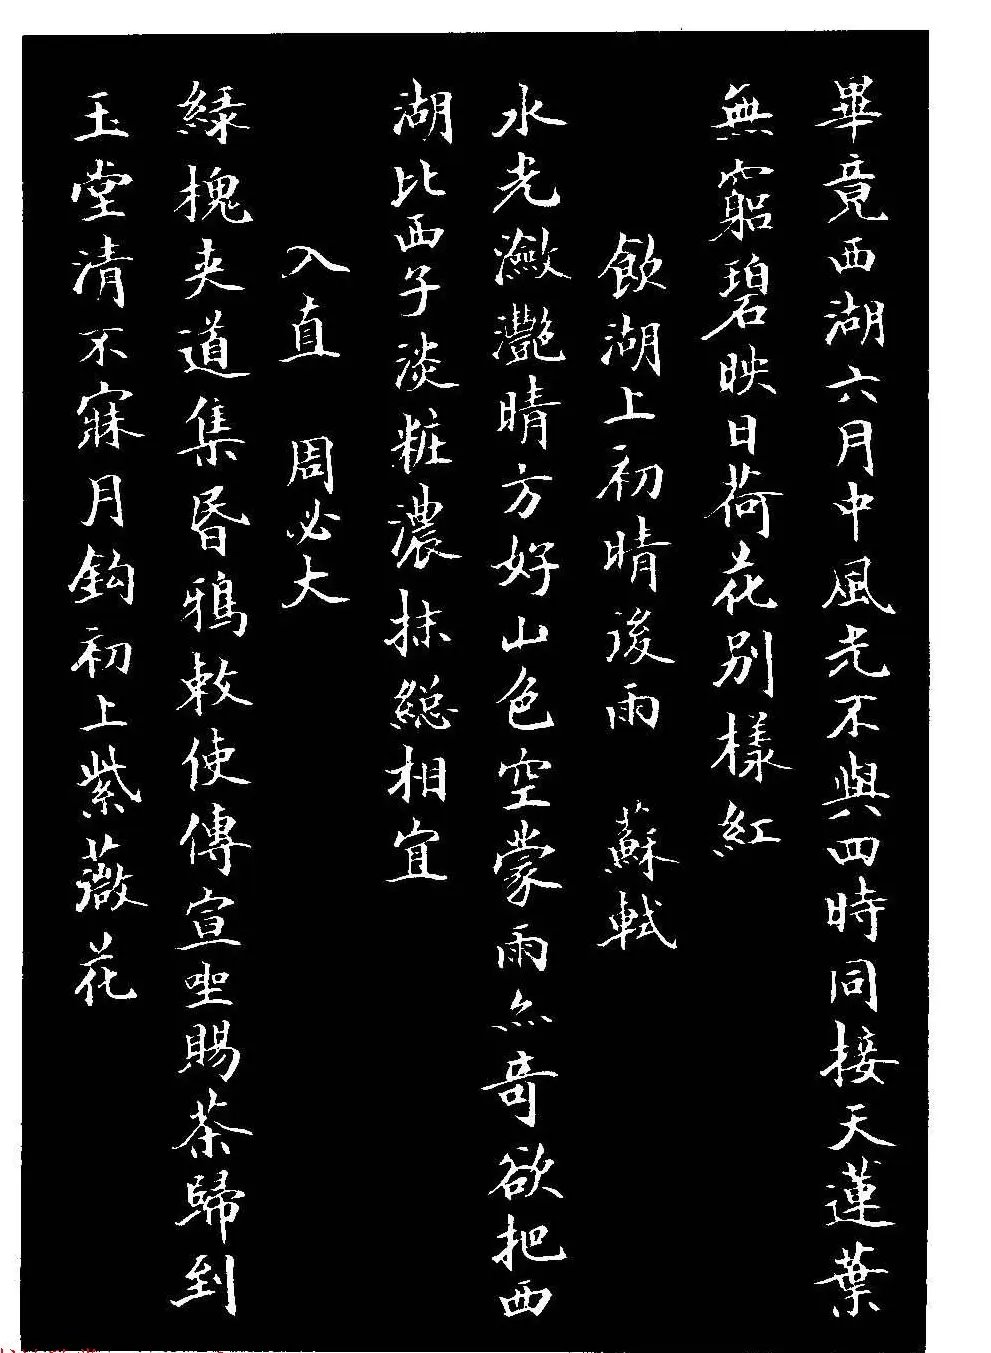 畢竟西湖六月中風光不與四時同接天蓮葉
無窮碧映日荷花別樣紅
飲湖上初晴後雨 蘇軾
水光瀲灩晴方好山色空蒙雨亦奇欲把西
湖比西子淡粧濃抹總相宜
入直 周必大
綠槐夾道集昏鴉敕使傳宣坐賜茶歸到
玉堂清不寐月鈎初上紫薇花